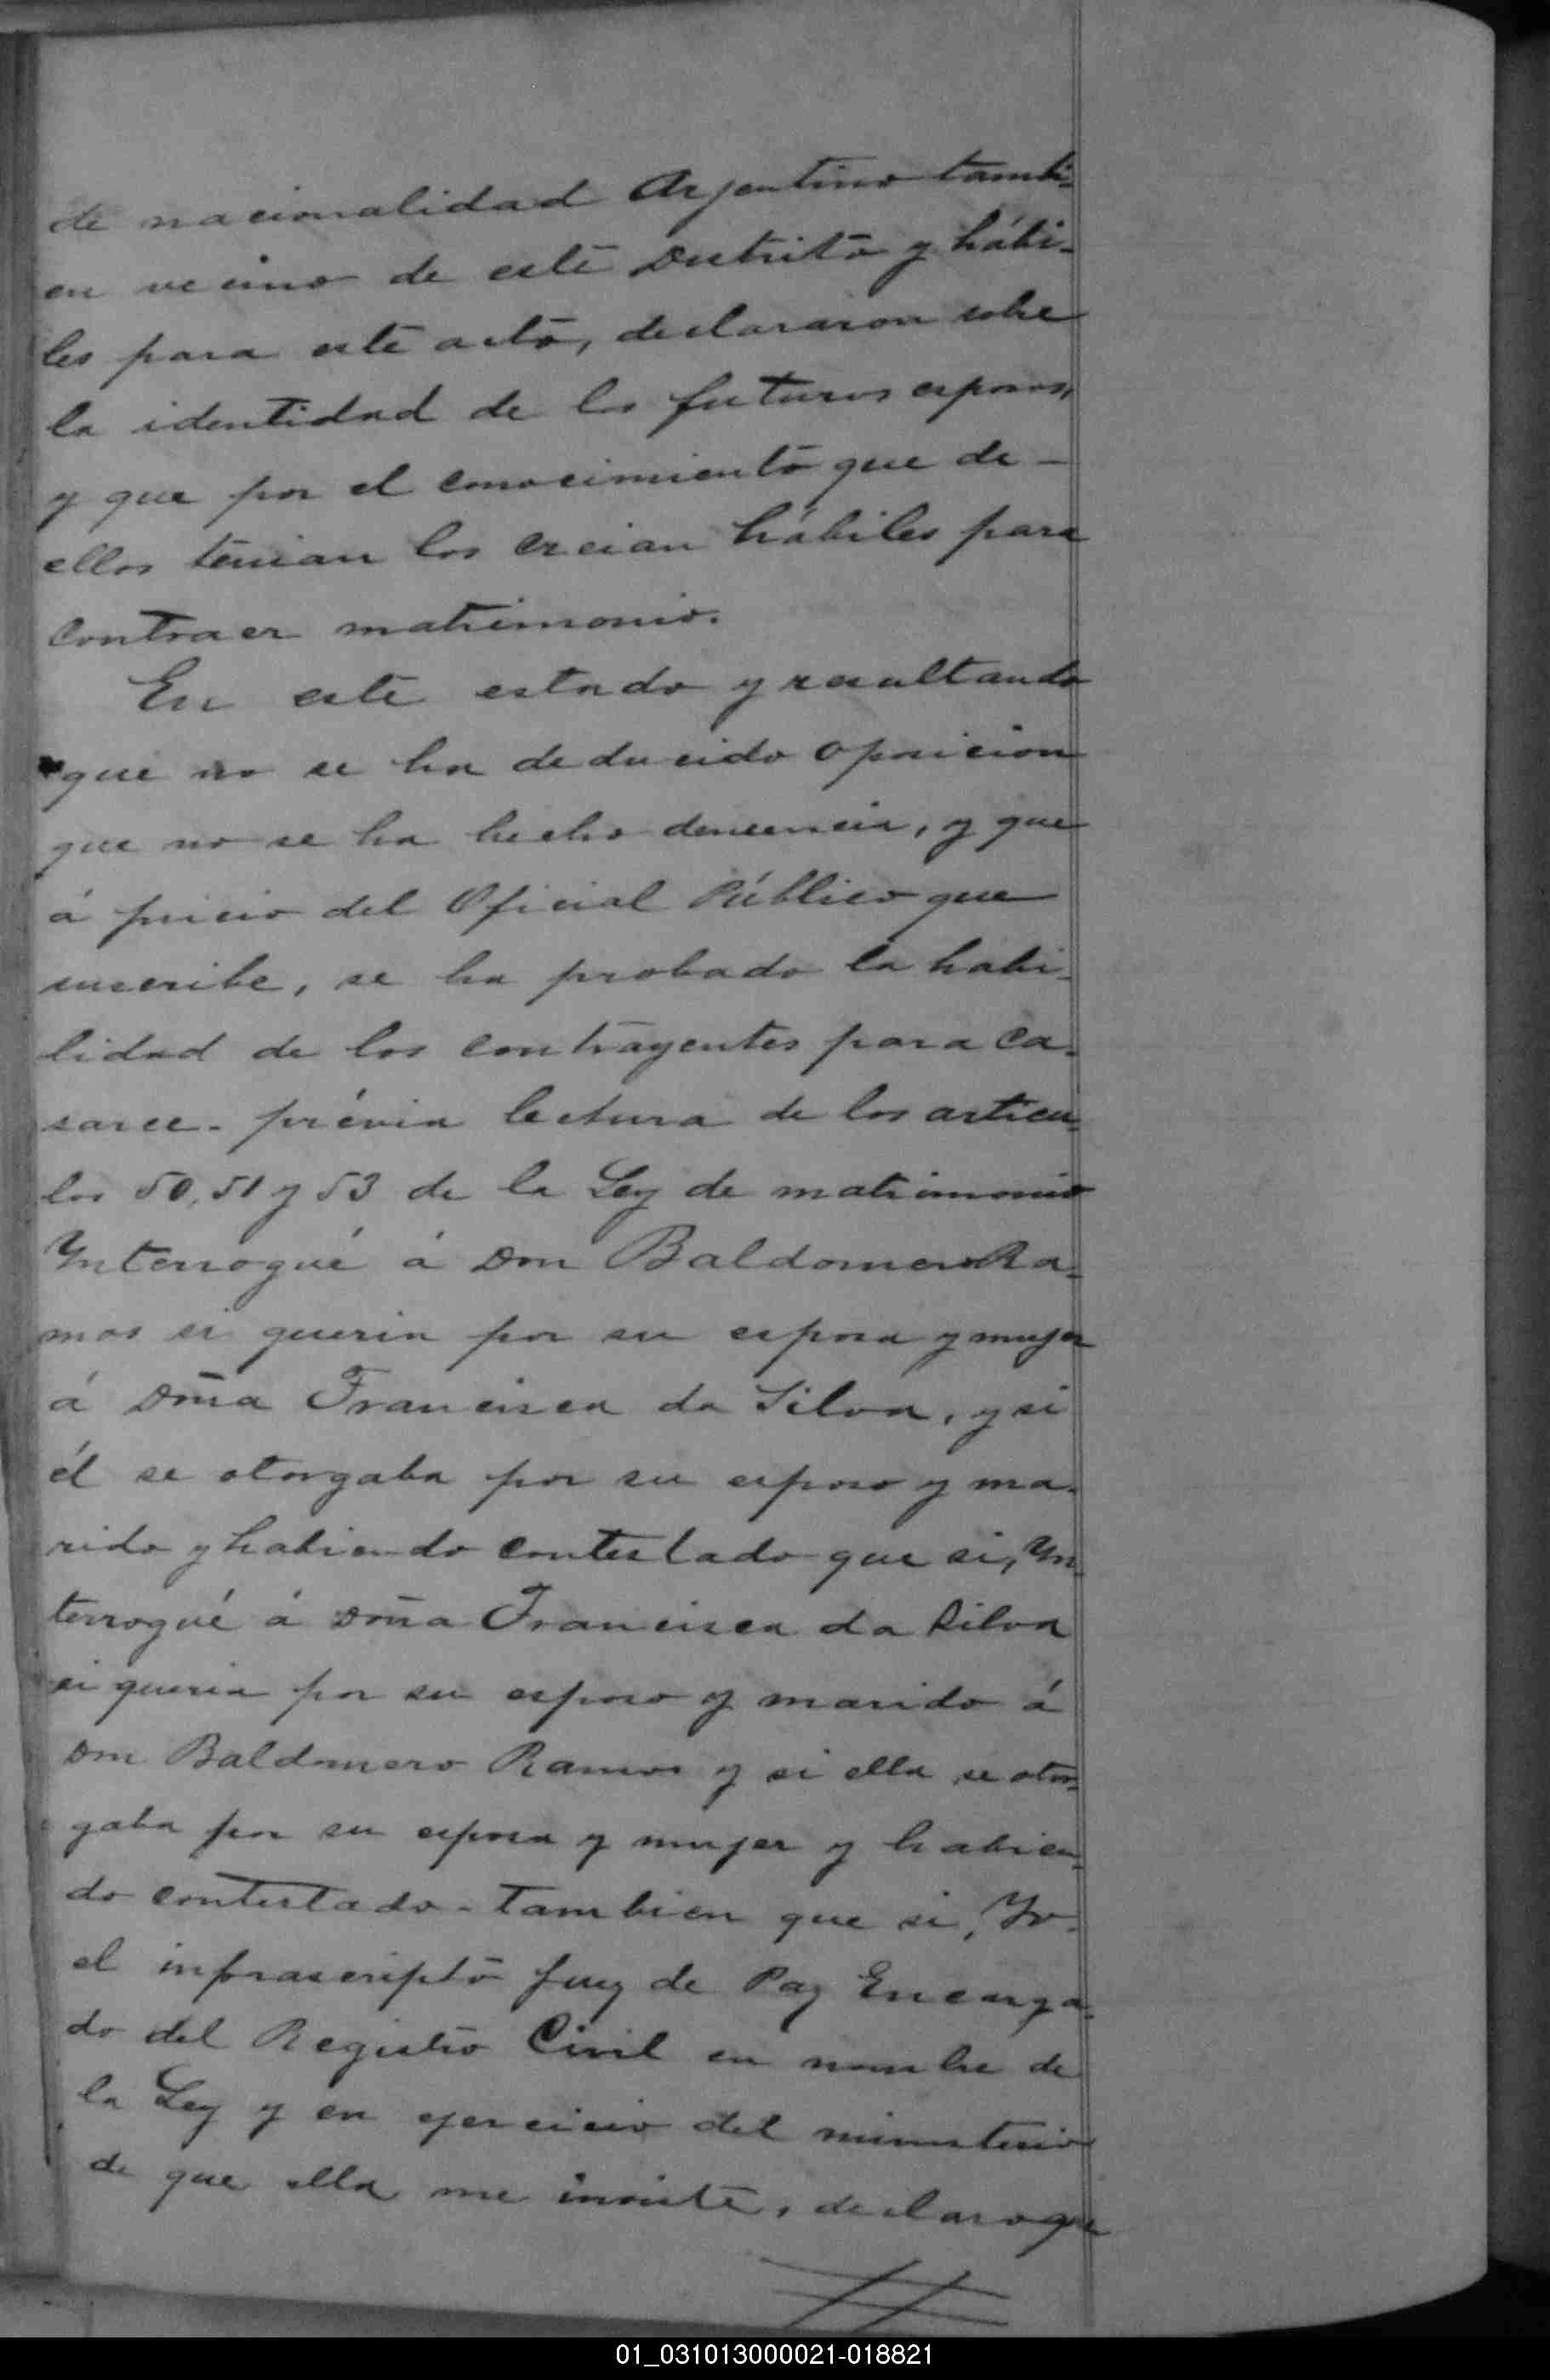 de nacionalidad Arjentino tambi-
en vecino de este Distrito y hábi-
les para este acto, declararon sobre
la identidad de los futuros esposos,
y que por el conocimiento que de -
ellos tenian los creian hábiles para
contraer matrimonio.
En este estado y resultando
que no se ha deducido oposicion
que no se ha hecho denuncia, y que
á juicio del Oficial Público que
suscribe, se ha probado la habi-
lidad de los contrayentes para ca-
sarce - prévia lectura de los articu-
los 50, 51 y 53 de la Ley de matrimonio
Interrogué á Don Baldomero Ra-
mos si queria por su esposa y mujer
á Doña Francisca da Silva, y si
él se otorgaba por su esposo y ma-
rido y habiendo contestado que si, In-
terrogué á Doña Francisca da Silva
si queria por su esposo y marido á
Don Baldomero Ramos y si ella se otor-
gaba por su esposa y mujer y habien-
do contestado - tambien que si, Yo
el infrascripto Juez de Paz Encarga-
do del Registro Civil en nombre de
la Ley y en ejercicio del ministerio
de que ella me inviste, declaro que
01_031013000021-018821